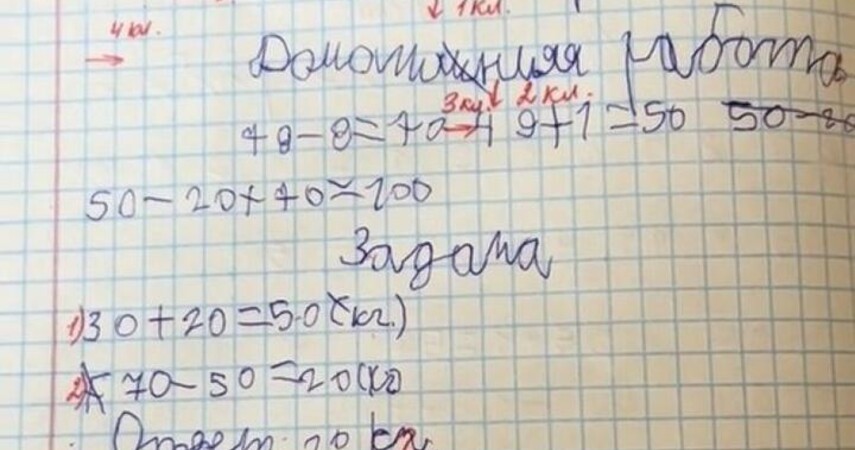 ↓ 1 кл.
4 кл. →
Домашняя работа
78-8=70 3 кл. → ↓ 2 кл. 49+1=50
50-20+70=100
Задача
1) 30+20=50 (кг.)
2) 70-50=20 (кг)
Ответ: 20 кг